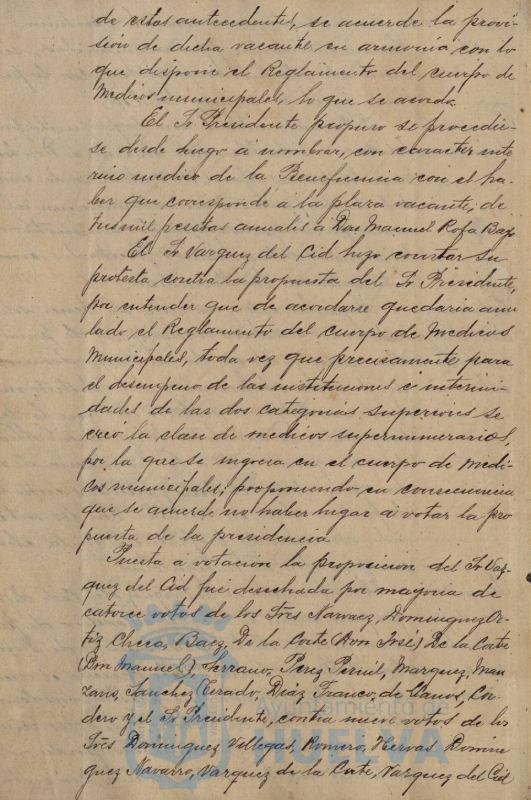 de estos antecedentes, se acuerde la provi-
sión de dicha vacante en armonia con lo
que dispone el Reglamento del cuerpo de
Medicos municipales, lo que se acordó.
El Sr Presidente propuso se procedie-
se desde luego á nombrar, con caracter inte
rino medico de la Beneficencia con el ha-
ber que corresponde á la plaza vacante, de
tres mil pesetas anuales á Don Manuel Rofa Bago
El Sr Vazquez del Cid hizo constar su
protesta contra la propuesta del Sr Presidente,
por entender que de acordarse quedaria anu
lado el Reglamento del cuerpo de Medicos
Municipales, toda vez que precisamente para
el desempeño de las instituciones é interini-
dades de las dos categorias superiores se
creó la clase de medicos supernumerarios,
por la que se ingresa en el cuerpo de medi-
cos municipales; proponiendo en consecuencia
que se acuerde no haber lugar á votar la pro
puesta de la presidencia
Puesta á votación la proposicion del Sr Vaz-
quez del Cid fué desechada por mayoria de
catorce votos de los Sres Narvaez, Dominguez Or-
tiz Checa, Baez, De la Corte (Don José) De la Corte
(Don Manuel) Serrano, Perez Pernil, Marquez, Man
zano, Sanchez Tirado, Diaz Franco, de Llanos, Cor-
dero y el Sr Presidente, contra nueve votos de los
Sres Dominguez Villegas, Romero, Hervas, Domin
guez Navarro, Vazquez de la Corte, Vazquez del Cid
Ayuntamiento de
HUELVA